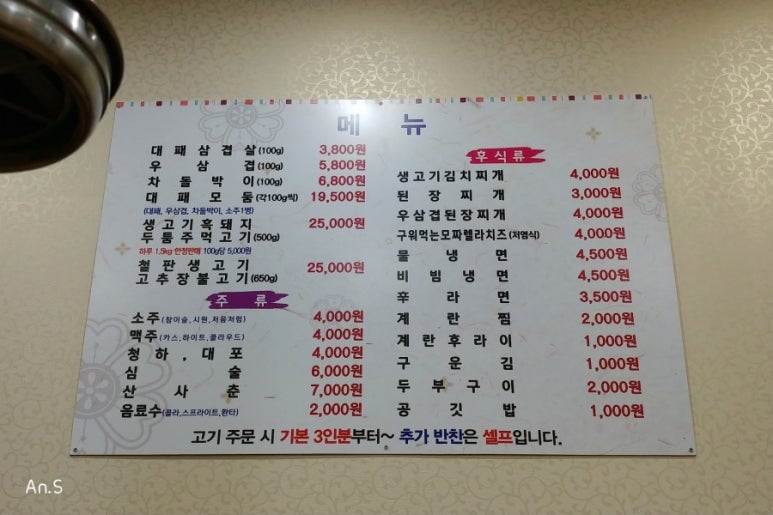 메 뉴
대패삼겹살(100g) 3,800원
우삼겹(100g) 5,800원
차돌박이(100g) 6,800원
대패모둠(각100g씩) 19,500원
(대패, 우삼겹, 차돌박이, 소주1병)
생고기흑돼지 25,000원
두툼주먹고기(500g)
하루 1.5kg 한정판매 100g당 5,000원
철판생고기 25,000원
고추장불고기(650g)
주 류
소주(참이슬,시원,처음처럼) 4,000원
맥주(카스,하이트,클라우드) 4,000원
청하, 대포 4,000원
심술 6,000원
산사춘 7,000원
음료수(콜라,스프라이트,환타) 2,000원
후식류
생고기김치찌개 4,000원
된장찌개 3,000원
우삼겹된장찌개 4,000원
구워먹는모짜렐라치즈(저염식) 4,000원
물냉면 4,500원
비빔냉면 4,500원
辛라면 3,500원
계란찜 2,000원
계란후라이 1,000원
구운김 1,000원
두부구이 2,000원
공깃밥 1,000원
고기 주문 시 기본 3인분부터~ 추가 반찬은 셀프입니다.
An.S